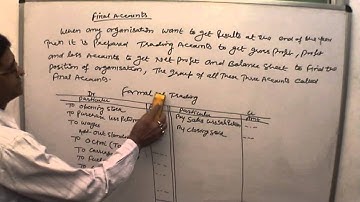 Final Accounts
When any organisation want to get Results at the end of the year
Then it is Prepared Trading Accounts to get gross Profit, Profit
and loss Accounts to get Net Profit and Balance Sheet to find the
position of organisation, The group of all These Three Accounts called
Final Accounts.
Format of Trading
Dr Cr
Particular Particular Amt
To opening stock By Sales Less Return
To Purchase Less Return By Closing stock
To wages
Add - Out standing
To
To Carriage
To Fuel
To